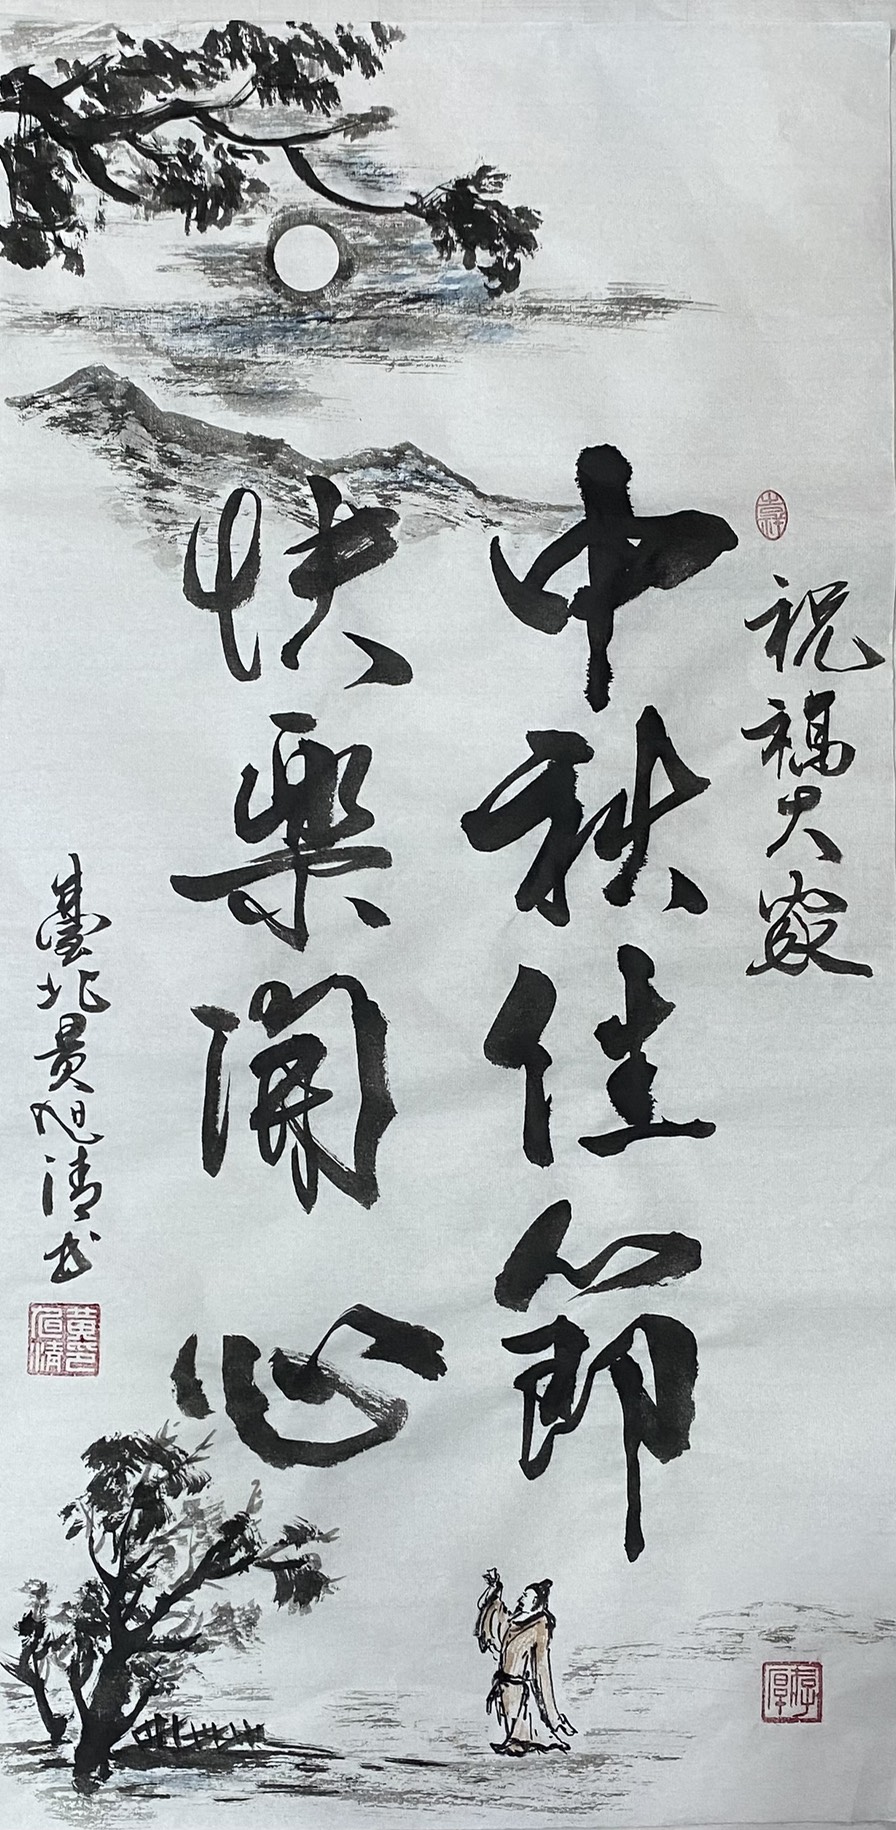 祝福大家
中秋佳節
快樂開心
臺北黃旭清書